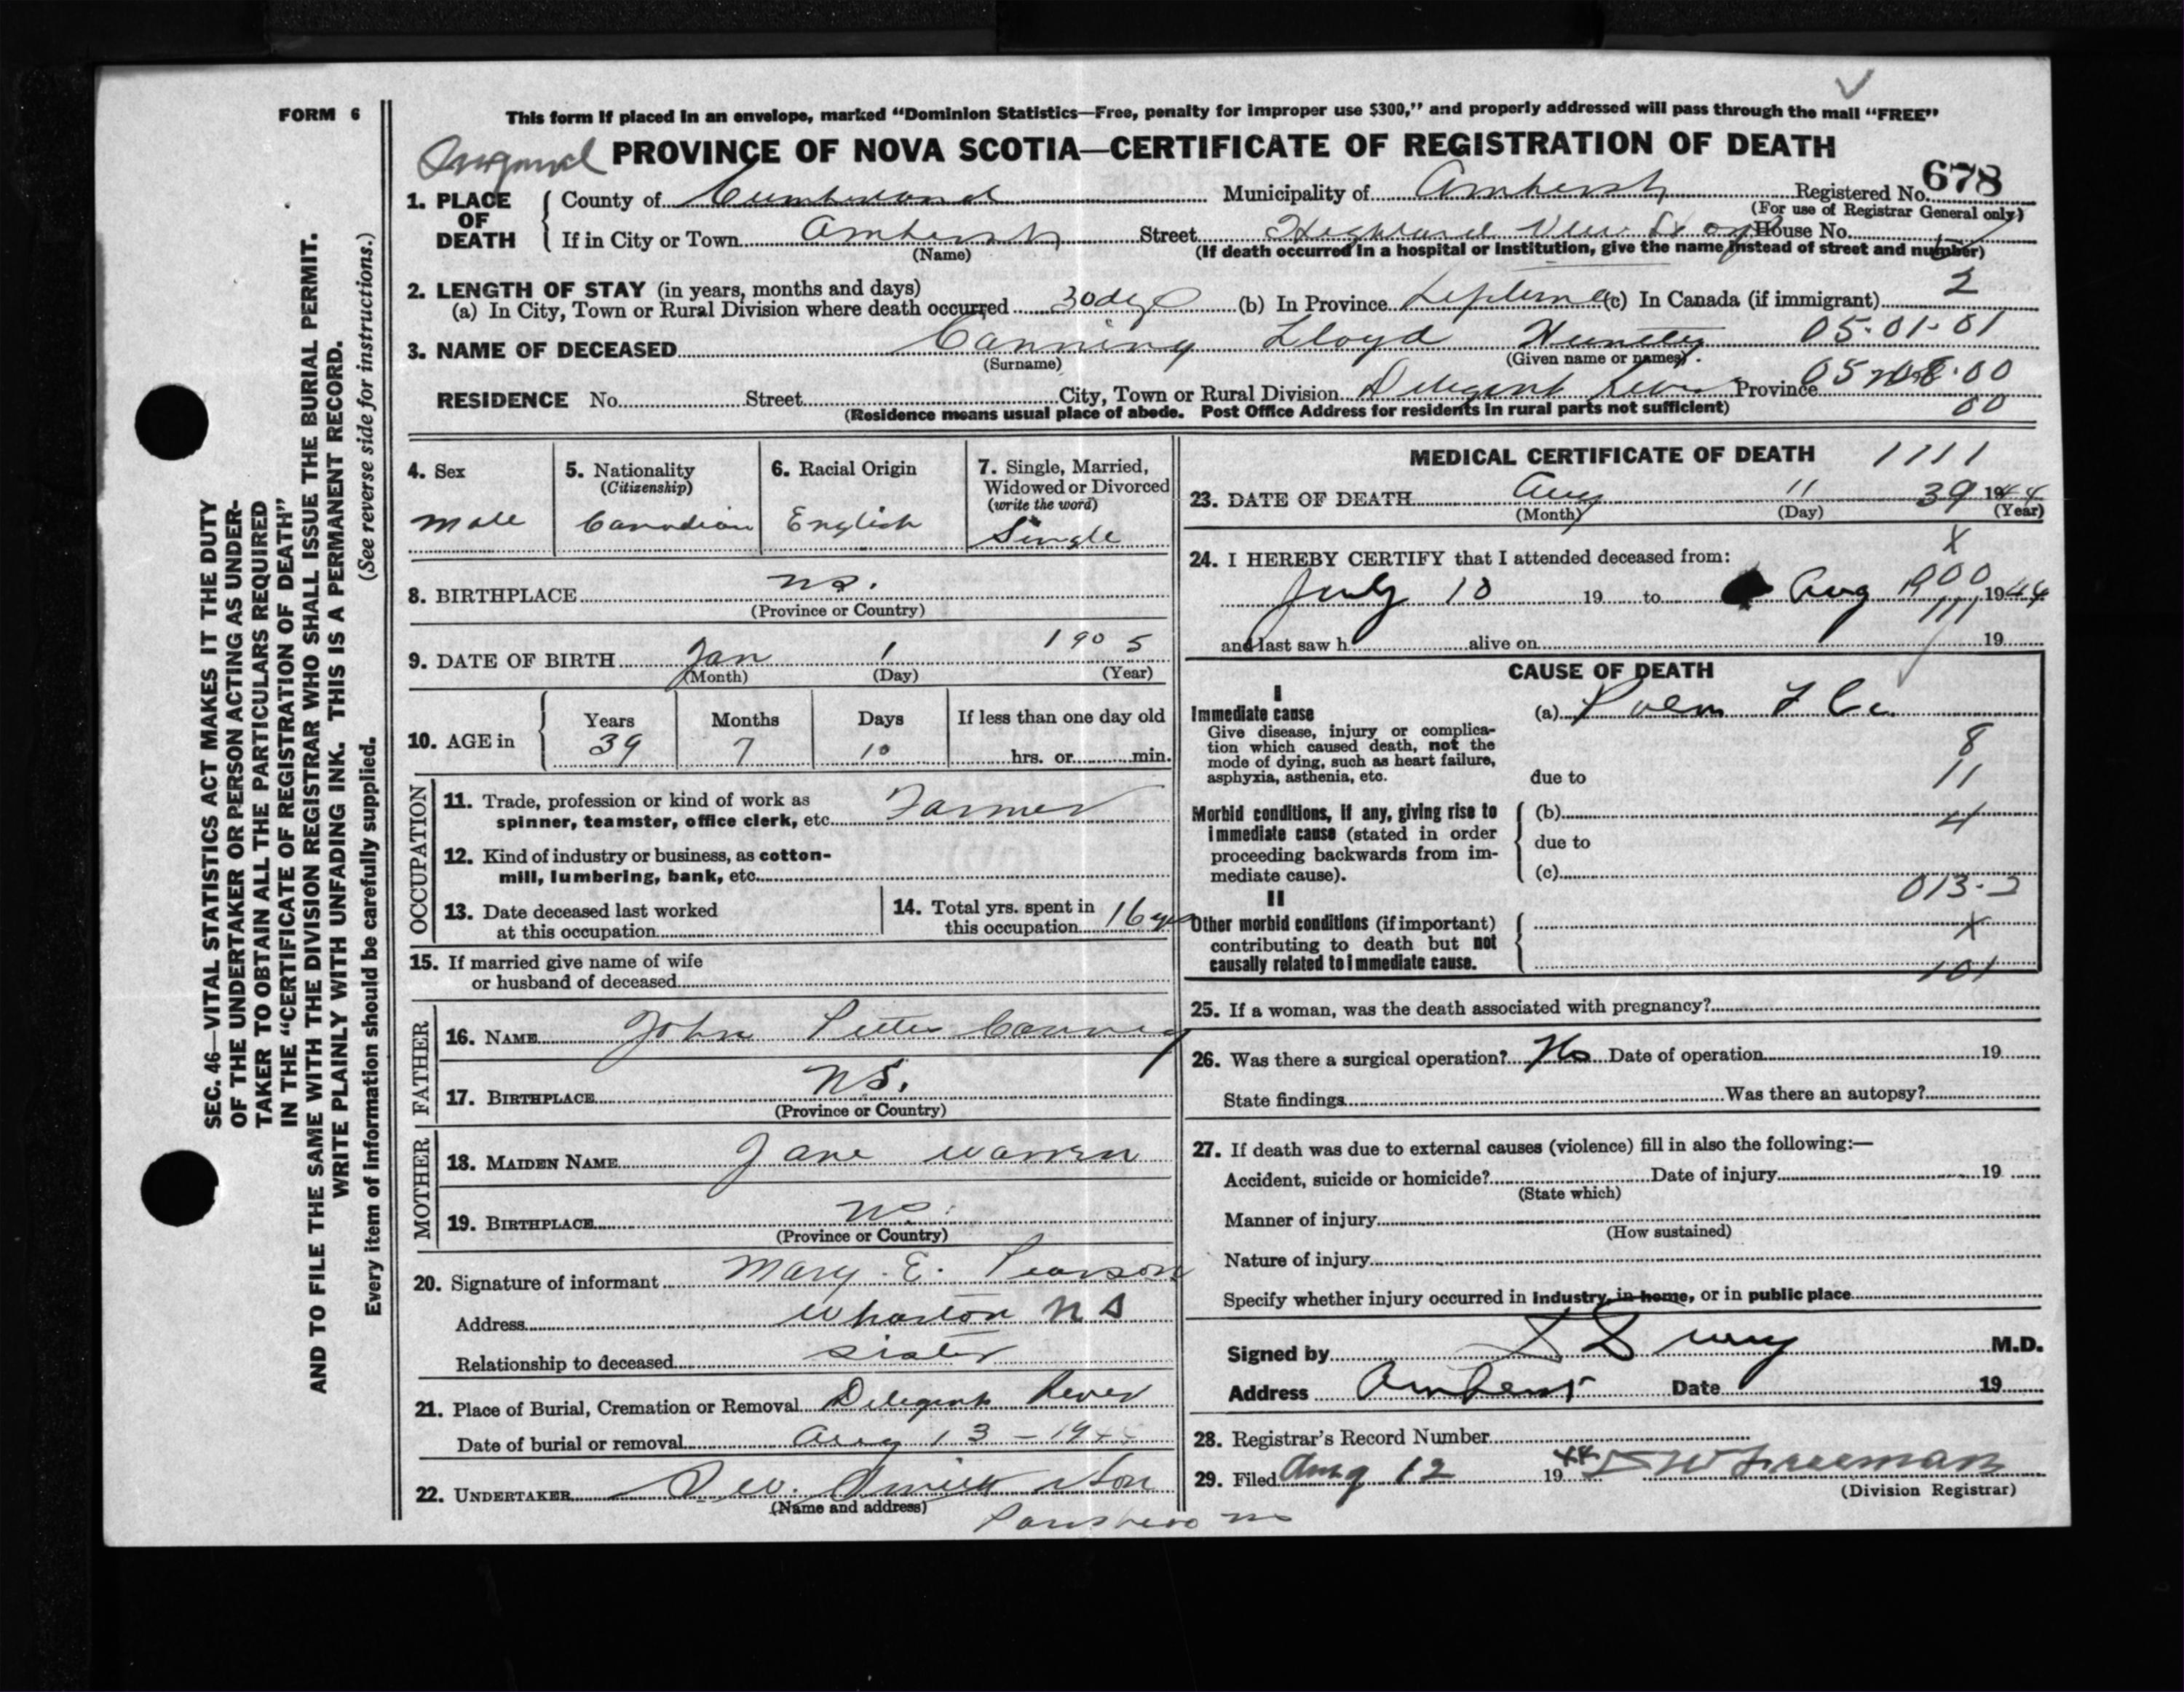 FORM 6
This form if placed in an envelope, marked "Dominion Statistics—Free, penalty for improper use $300," and properly addressed will pass through the mail "FREE"
PROVINCE OF NOVA SCOTIA—CERTIFICATE OF REGISTRATION OF DEATH
1. PLACE OF DEATH County of Cumberland Municipality of Amherst Registered No. 678
(For use of Registrar General only)
If in City or Town Amherst Street Highland View House No.
(Name) (If death occurred in a hospital or institution, give the name instead of street and number)
2. LENGTH OF STAY (in years, months and days) 2
(a) In City, Town or Rural Division where death occurred 30 dys (b) In Province (c) In Canada (if immigrant)
3. NAME OF DECEASED Canning Lloyd 05-01-01
(Surname) (Given name or names)
RESIDENCE No. Street City, Town or Rural Division Diligent River Province
(Residence means usual place of abode. Post Office Address for residents in rural parts not sufficient) 00
4. Sex
Male
5. Nationality
(Citizenship)
Canadian
6. Racial Origin
English
7. Single, Married,
Widowed or Divorced
(write the word)
Single
8. BIRTHPLACE N.S.
(Province or Country)
9. DATE OF BIRTH Jan 1 1905
(Month) (Day) (Year)
10. AGE in
Years Months Days If less than one day old
39 7 10 hrs. or min.
OCCUPATION
11. Trade, profession or kind of work as
spinner, teamster, office clerk, etc. Farmer
12. Kind of industry or business, as cotton-
mill, lumbering, bank, etc.
13. Date deceased last worked
at this occupation
14. Total yrs. spent in
this occupation 16 yrs
15. If married give name of wife
or husband of deceased
FATHER
16. NAME John Canning
17. BIRTHPLACE N.S.
(Province or Country)
MOTHER
18. MAIDEN NAME Jane Warren
19. BIRTHPLACE N.S.
(Province or Country)
20. Signature of informant Mary E. Pearson
Address Wharton N S
Relationship to deceased sister
21. Place of Burial, Cremation or Removal Diligent River
Date of burial or removal Aug 13 - 1944
22. UNDERTAKER Son
(Name and address)
Parrsboro NS
MEDICAL CERTIFICATE OF DEATH 1111
23. DATE OF DEATH Aug 11 39 1944
(Month) (Day) (Year)
24. I HEREBY CERTIFY that I attended deceased from: X
July 10 19 to Aug 1944
000
111
and last saw h alive on 19
CAUSE OF DEATH
I
Immediate cause (a)
Give disease, injury or complica-
tion which caused death, not the
mode of dying, such as heart failure,
asphyxia, asthenia, etc. due to
8
11
4
Morbid conditions, if any, giving rise to (b)
immediate cause (stated in order
proceeding backwards from im- due to
mediate cause). (c)
013-2
II
Other morbid conditions (if important)
contributing to death but not
causally related to immediate cause.
X
101
25. If a woman, was the death associated with pregnancy?
26. Was there a surgical operation? No Date of operation 19
State findings Was there an autopsy?
27. If death was due to external causes (violence) fill in also the following:—
Accident, suicide or homicide? Date of injury 19
(State which)
Manner of injury
(How sustained)
Nature of injury
Specify whether injury occurred in industry, in home, or in public place
Signed by M.D.
Address Amherst Date 19
28. Registrar's Record Number
29. Filed Aug 12 1944 Freeman
(Division Registrar)
SEC. 46—VITAL STATISTICS ACT MAKES IT THE DUTY
OF THE UNDERTAKER OR PERSON ACTING AS UNDER-
TAKER TO OBTAIN ALL THE PARTICULARS REQUIRED
IN THE "CERTIFICATE OF REGISTRATION OF DEATH"
AND TO FILE THE SAME WITH THE DIVISION REGISTRAR WHO SHALL ISSUE THE BURIAL PERMIT.
WRITE PLAINLY WITH UNFADING INK. THIS IS A PERMANENT RECORD.
Every item of information should be carefully supplied. (See reverse side for instructions.)